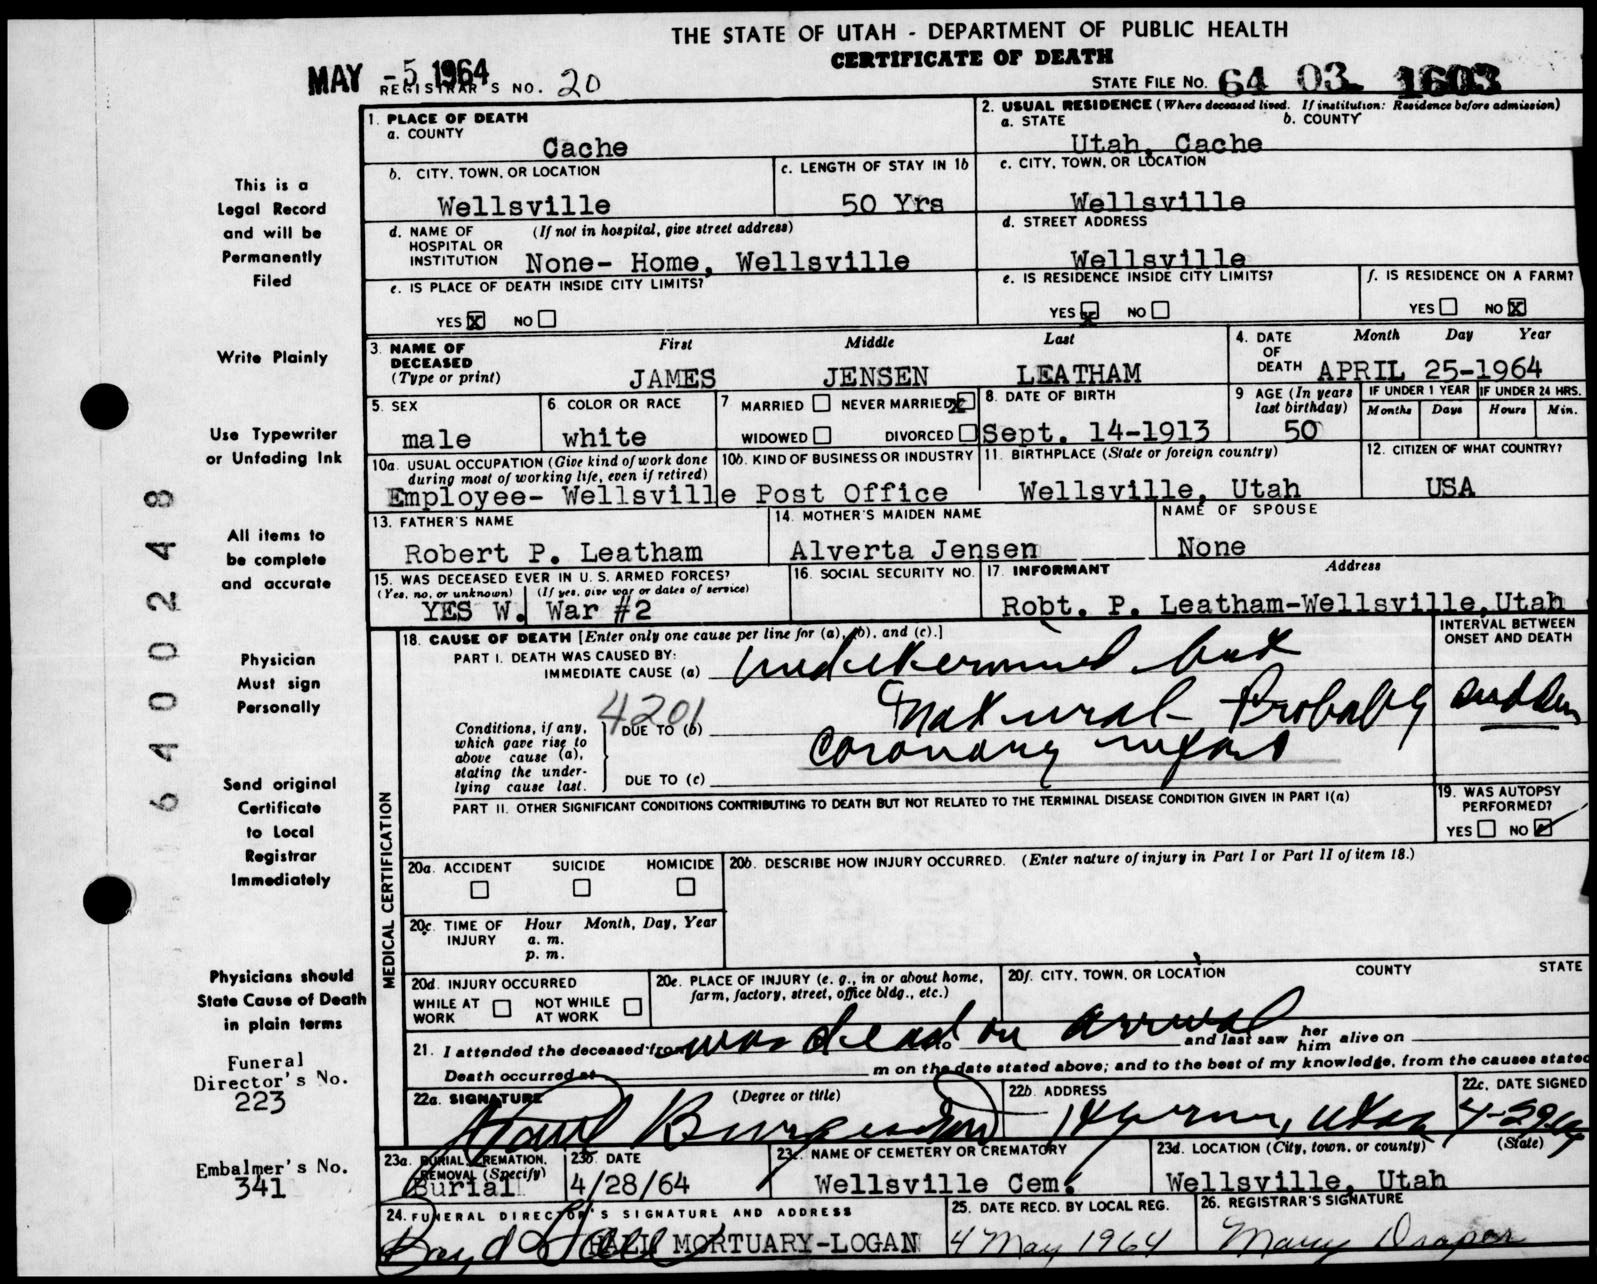 THE STATE OF UTAH - DEPARTMENT OF PUBLIC HEALTH
CERTIFICATE OF DEATH
MAY -5 1964
REGISTRAR'S NO. 20
STATE FILE NO. 64 03 1603
This is a
Legal Record
and will be
Permanently
Filed
Write Plainly
Use Typewriter
or Unfading Ink
All items to
be complete
and accurate
Physician
Must sign
Personally
Send original
Certificate
to Local
Registrar
Immediately
Physicians should
State Cause of Death
in plain terms
Funeral
Director's No.
223
Embalmer's No.
341
64000248
1. PLACE OF DEATH
a. COUNTY
Cache
2. USUAL RESIDENCE (Where deceased lived. If institution: Residence before admission)
a. STATE b. COUNTY
Utah, Cache
b. CITY, TOWN, OR LOCATION
Wellsville
c. LENGTH OF STAY IN 1b
50 Yrs
c. CITY, TOWN, OR LOCATION
Wellsville
d. NAME OF (If not in hospital, give street address)
HOSPITAL OR
INSTITUTION None- Home, Wellsville
d. STREET ADDRESS
Wellsville
e. IS PLACE OF DEATH INSIDE CITY LIMITS?
YES X NO
e. IS RESIDENCE INSIDE CITY LIMITS?
YES X NO
f. IS RESIDENCE ON A FARM?
YES NO X
3. NAME OF First Middle Last
DECEASED
(Type or print) JAMES JENSEN LEATHAM
4. DATE Month Day Year
OF
DEATH APRIL 25-1964
5. SEX
male
6. COLOR OR RACE
white
7. MARRIED NEVER MARRIED X
WIDOWED DIVORCED
8. DATE OF BIRTH
Sept. 14-1913
9. AGE (In years
last birthday)
50
IF UNDER 1 YEAR IF UNDER 24 HRS.
Months Days Hours Min.
10a. USUAL OCCUPATION (Give kind of work done
during most of working life, even if retired)
10b. KIND OF BUSINESS OR INDUSTRY
Employee- Wellsville Post Office
11. BIRTHPLACE (State or foreign country)
Wellsville, Utah
12. CITIZEN OF WHAT COUNTRY?
USA
13. FATHER'S NAME
Robert P. Leatham
14. MOTHER'S MAIDEN NAME
Alverta Jensen
NAME OF SPOUSE
None
15. WAS DECEASED EVER IN U. S. ARMED FORCES?
(Yes, no, or unknown) (If yes, give war or dates of service)
YES W. War #2
16. SOCIAL SECURITY NO.
17. INFORMANT Address
Robt. P. Leatham-Wellsville, Utah
MEDICAL CERTIFICATION
18. CAUSE OF DEATH [Enter only one cause per line for (a), (b), and (c).]
INTERVAL BETWEEN
ONSET AND DEATH
PART I. DEATH WAS CAUSED BY:
IMMEDIATE CAUSE (a) undetermined but
Natural - Probably sudden
4201
Conditions, if any,
which gave rise to
above cause (a),
stating the under-
lying cause last.
DUE TO (b)
coronary infarct
DUE TO (c)
PART II. OTHER SIGNIFICANT CONDITIONS CONTRIBUTING TO DEATH BUT NOT RELATED TO THE TERMINAL DISEASE CONDITION GIVEN IN PART I(a)
19. WAS AUTOPSY
PERFORMED?
YES NO
20a. ACCIDENT SUICIDE HOMICIDE
20b. DESCRIBE HOW INJURY OCCURRED. (Enter nature of injury in Part I or Part II of item 18.)
20c. TIME OF Hour Month, Day, Year
INJURY a. m.
p. m.
20d. INJURY OCCURRED
WHILE AT WORK NOT WHILE AT WORK
20e. PLACE OF INJURY (e. g., in or about home,
farm, factory, street, office bldg., etc.)
20f. CITY, TOWN, OR LOCATION COUNTY STATE
21. I attended the deceased from was dead on arrival to and last saw her him alive on
Death occurred at m on the date stated above; and to the best of my knowledge, from the causes stated
22a. SIGNATURE (Degree or title)
22b. ADDRESS
Hyrum, Utah
22c. DATE SIGNED
4-29-64
23a. BURIAL, CREMATION,
REMOVAL (Specify)
Burial
23b. DATE
4/28/64
23c. NAME OF CEMETERY OR CREMATORY
Wellsville Cem.
23d. LOCATION (City, town, or county) (State)
Wellsville, Utah
24. FUNERAL DIRECTOR'S SIGNATURE AND ADDRESS
Boyd Hall HALL MORTUARY-LOGAN
25. DATE RECD. BY LOCAL REG.
4 May 1964
26. REGISTRAR'S SIGNATURE
Mary Draper